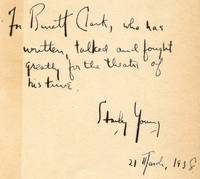 For Barrett Clark, who has
written, talked and fought
greatly for the theatre of
his time.
Stark Young
21 March, 1938